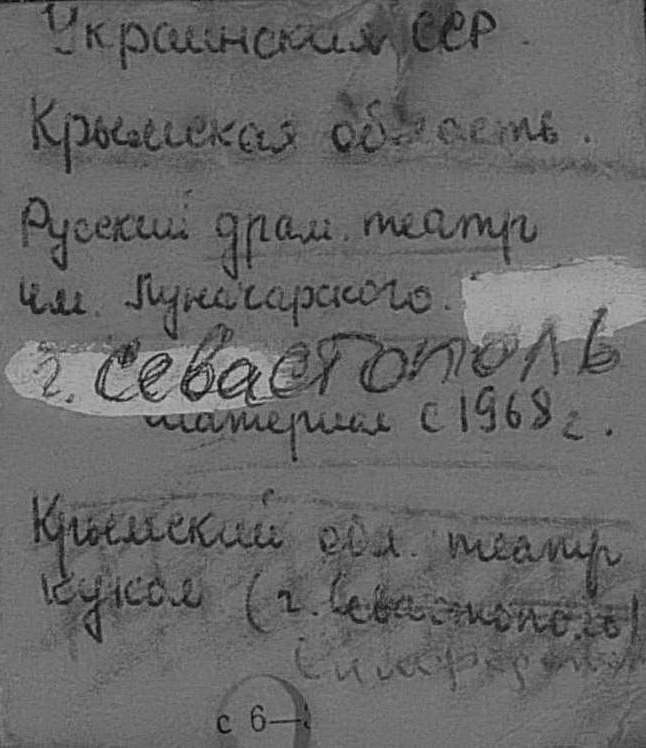 Украинская ССР.
Крымская область.
Русский драм. театр
им. Луначарского.
г. Севастополь
материал с 1968 г.
Крымский обл. театр
кукол (г. Севастополь)
с 6—